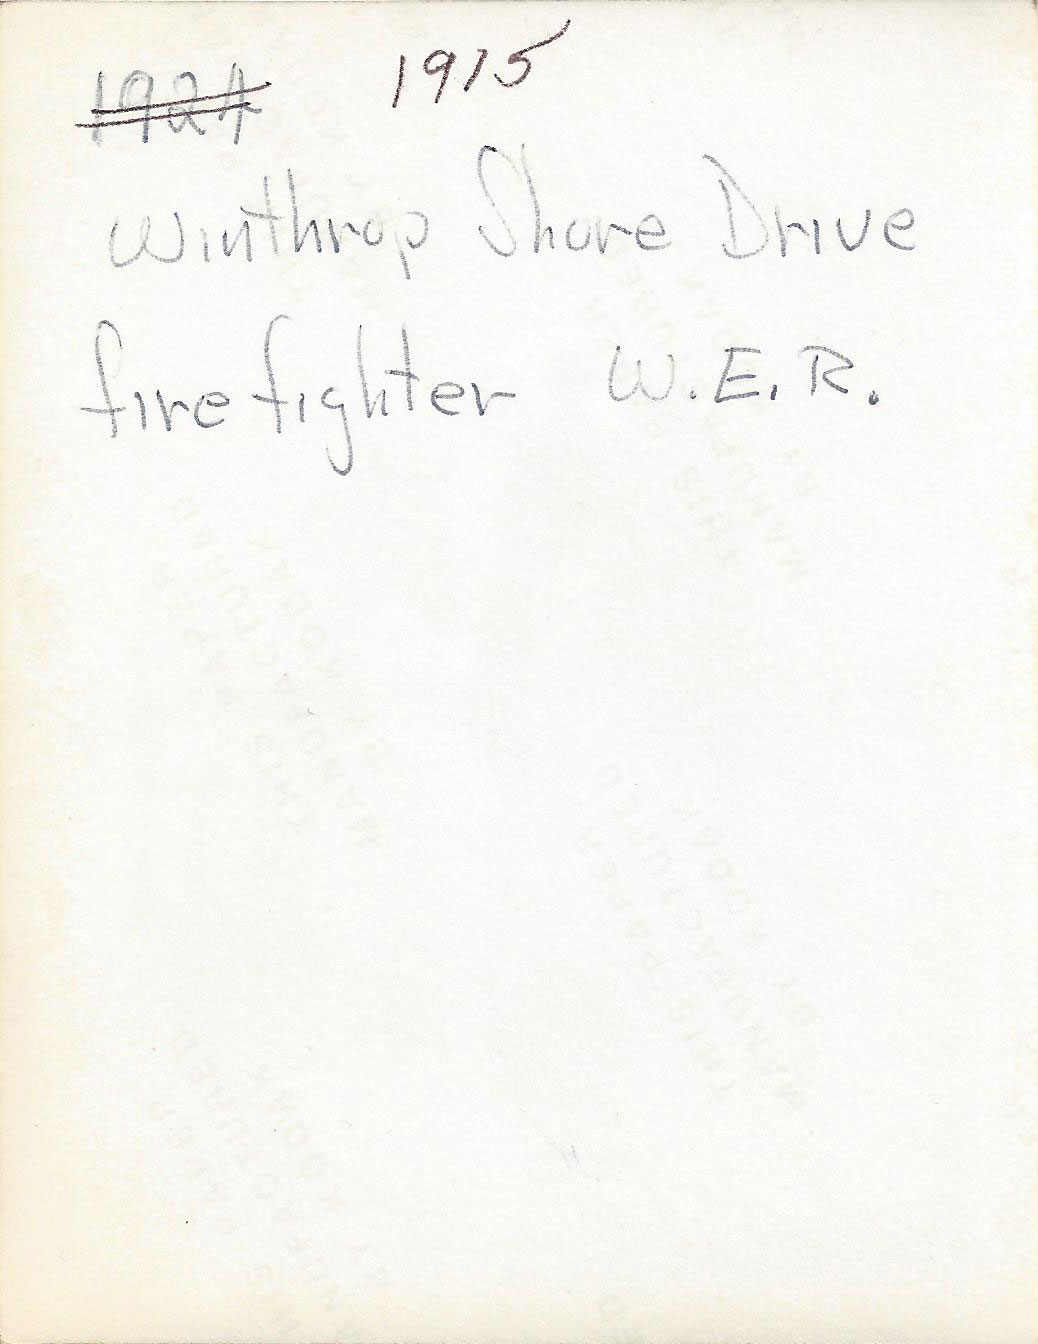 1924 1915
Winthrop Shore Drive
firefighter W.E.R.
THIS PAPER
MANUFACTURED
BY KODAK
THIS PAPER
MANUFACTURED
BY KODAK
THIS PAPER
MANUFACTURED
BY KODAK